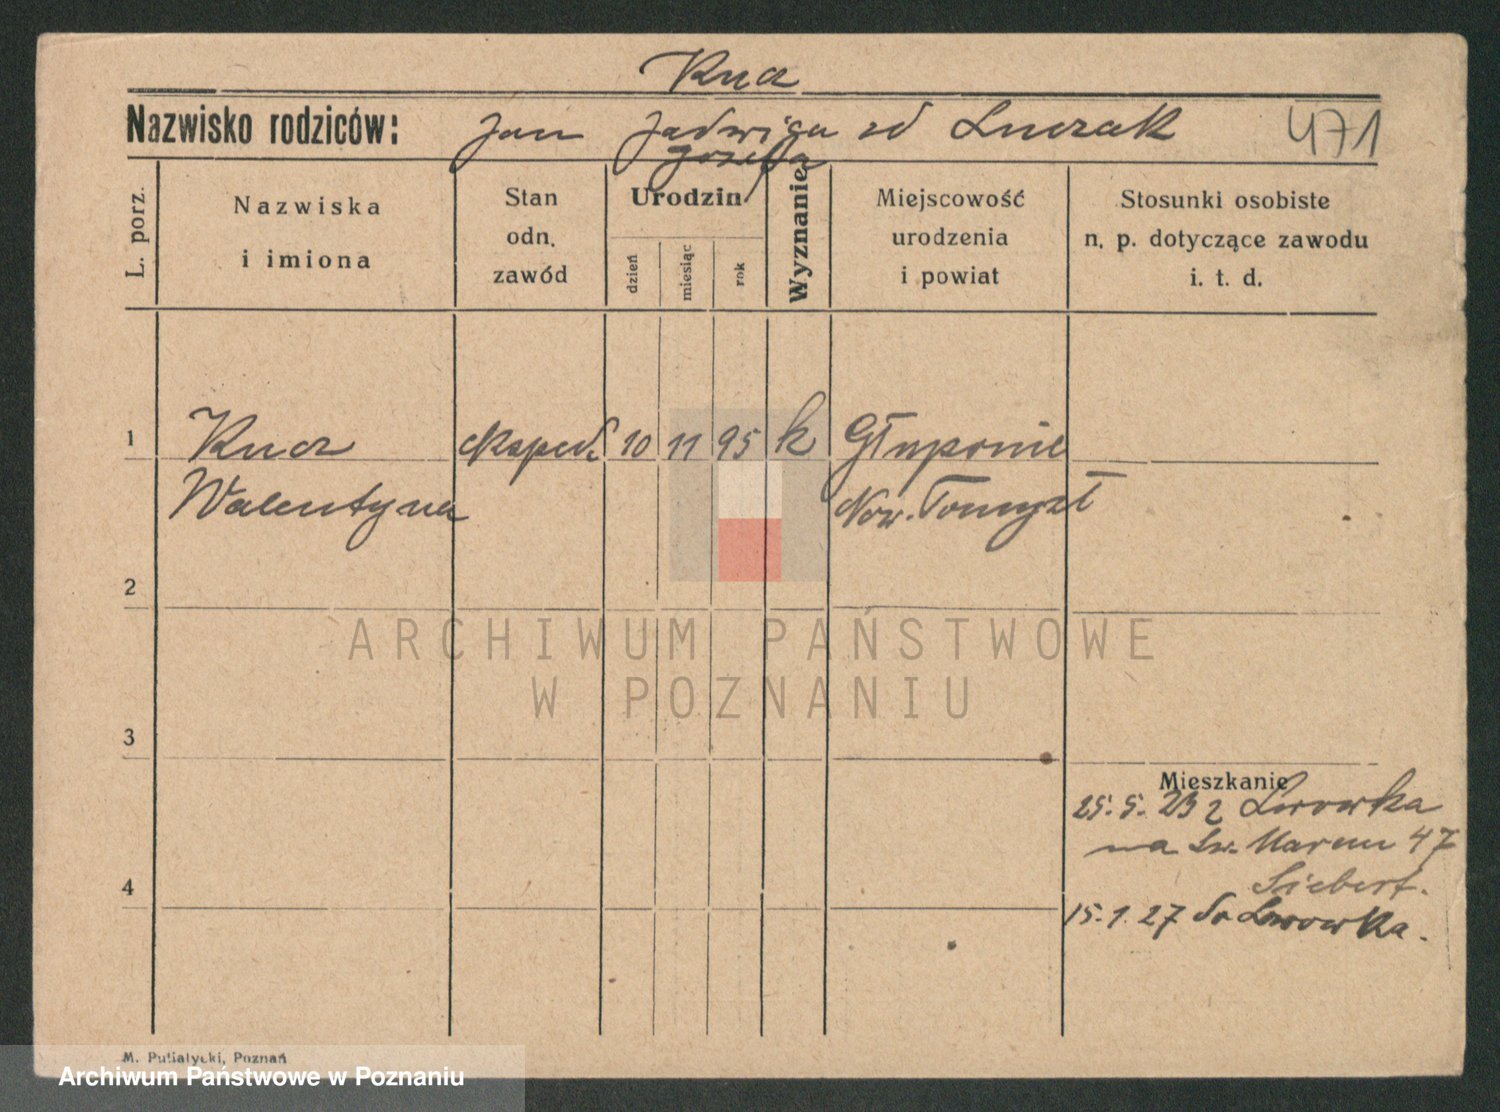 Kucz
Nazwisko rodziców: Jan Jadwiga zd Luczak 471
Józefa
L. porz.
Nazwiska i imiona
Stan odn. zawód
Urodzin
dzień
miesiąc
rok
Wyznanie
Miejscowość urodzenia i powiat
Stosunki osobiste n. p. dotyczące zawodu i. t. d.
1 Kucz eksped. 10 11 95 k Głuponie
Walentyna Now. Tomyśl
2
ARCHIWUM PAŃSTWOWE
W POZNANIU
3
Mieszkanie
25.5.23 z Lwowka
na Św. Marcin 47
Siebert.
4
15.1.27 do Lwowka.
M. Putiatycki, Poznań
Archiwum Państwowe w Poznaniu